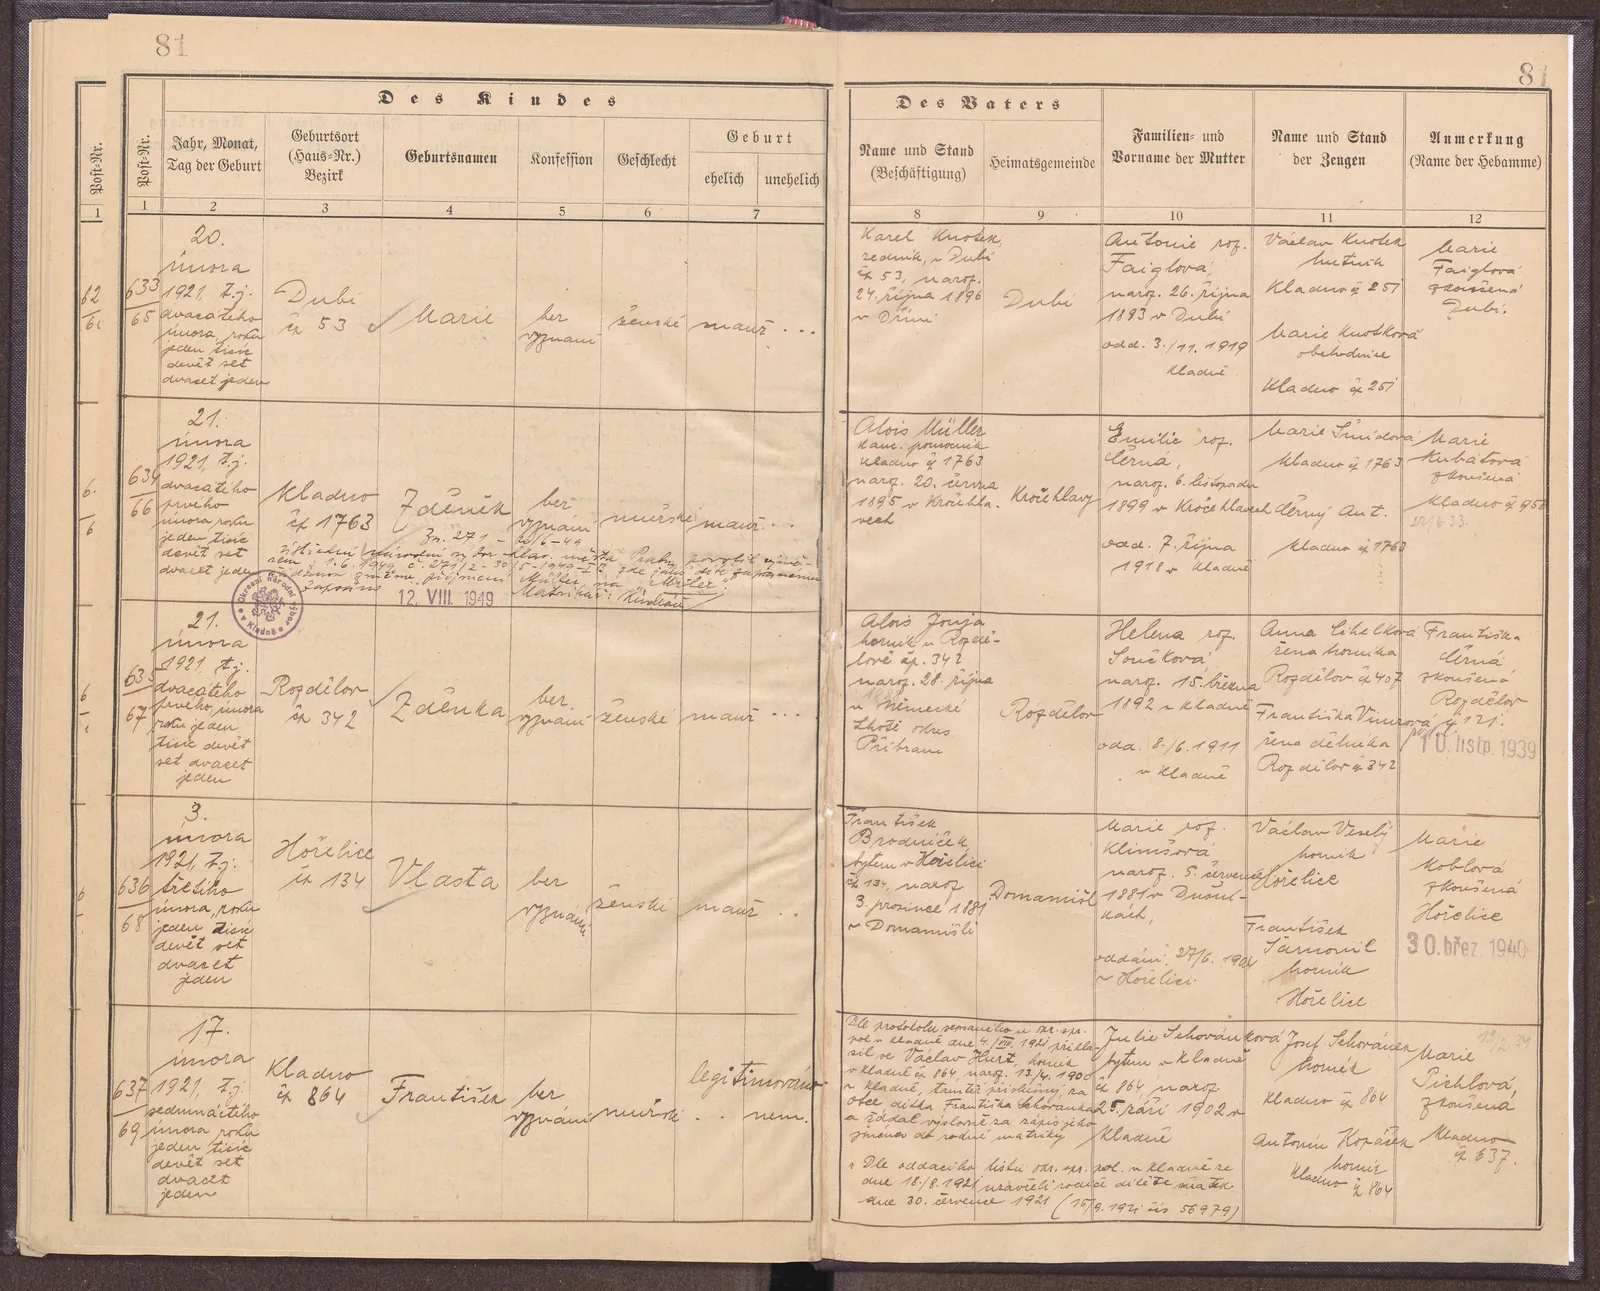 81
81
Des Kindes
Des Vaters
Post-Nr.
Post-Nr.
Jahr, Monat,
Tag der Geburt
Geburtsort
(Haus-Nr.)
Bezirk
Geburtsnamen
Konfession
Geschlecht
Geburt
ehelich
unehelich
Name und Stand
(Beschäftigung)
Heimatsgemeinde
Familien- und
Vorname der Mutter
Name und Stand
der Zeugen
Anmerkung
(Name der Hebamme)
1
1 2 3 4 5 6 7
8 9 10 11 12
633
65
20.
února
1921, t.j.
dvacátého
února, roku
jeden tisíc
devět set
dvacet jeden
Dubí
čp 53
Marie
bez
vyznání
ženské
manž. ...
Karel Knotek,
zedník, v Dubí
čp 53, naroz.
24. října 1896
v Dříni
Dubí
Antonie roz.
Faiglová,
naroz. 26. října
1893 v Dubí
odd. 3./11. 1919
Kladně
Václav Knotek
hutník
Kladno čp 251
Marie Knotková
obchodnice
Kladno čp 251
Marie
Faiglová
zkoušená
Dubí.
634
66
21.
února
1921, t.j.
dvacátého
prvého
února, roku
jeden tisíc
devět set
dvacet jeden
Kladno
čp 1763
Zdeněk
bez
vyznání
mužské
manž. ...
Zn. 271 -
12. VIII. 1949
Okresní národní výbor
v Kladně
Alois Müller
kanc. pomocník
Kladno čp 1763
naroz. 20. června
1895 v Kročehla-
vech
Kročehlavy
Emilie roz.
Černá,
naroz. 6. listopadu
1899 v Kročehlavech
odd. 7. října
1918 v Kladně
Marie Šmídová
Kladno čp 1763
Černý Ant.
Kladno čp 1763
Marie
Kubátová
zkoušená
Kladno čp 950
635
67
21.
února
1921, t.j.
dvacátého
prvého, února
roku jeden
tisíc devět
set dvacet
jeden
Rozdělov
čp 342
Zdeňka
bez
vyznání
ženské
manž. ...
Alois Jonja
horník v Rozdě-
lově čp. 342
naroz. 28. října
v Německé
Lhotě okres
Příbram
Rozdělov
Helena roz.
Součková,
naroz. 15. března
1892 v Kladně
odd. 8./6. 1911
v Kladně
Anna Cihelková
žena horníka
Rozdělov čp 407
Františka Vinzrová
žena dělníka
Rozdělov čp 342
Františka
Černá
zkoušená
Rozdělov
čp 121.
10. listp. 1939
636
68
3.
února
1921, t.j.
třetího
února, roku
jeden tisíc
devět set
dvacet
jeden
Hořelice
čp 134
Vlasta
bez
vyznání
ženské
manž. ..
František
Brodníček,
bytem v Hořelici
čp 134, naroz
3. prosince 1881
v Domamišli
Domamišl
Marie roz.
Klimšová,
naroz. 5. července
1881 v Dušní-
kách,
oddáni, 27/6. 1904
v Hořelici
Václav Veselý
horník
Hořelice
František
Šarnovil
horník
Hořelice
Marie
Koblová
zkoušená
Hořelice
30. břez. 1940
637
69
17.
února
1921, t.j.
sedmnáctého
února roku
jeden tisíc
devět set
dvacet
jeden
Kladno
čp 864
František
bez
vyznání
mužské
legitimováno
.. nem.
Dle protokolu sepsaného u okr. spr.
pol. v Kladně dne 4./VIII. 1921 přihlá-
sil se Václav Hurt horník
v Kladně čp 864, naroz. 13/4. 1900
v Kladně, tamtéž příslušný, za
otce dítka Františka Schovánka
a žádal výslovně za zápis jeho
jména do rodní matriky
Dle oddacího listu okr. spr. pol. v Kladně ze
dne 18./8. 1921 uzavřeli rodiče dítěte sňatek
dne 30. července 1921 (15/9. 1921 čís 56979)
Julie Schovánková
bytem v Kladně
čp 864, naroz.
25. září 1902 v
Kladně
Josef Schovánek
horník
Kladno čp 864
Antonín Kopášek
horník
Kladno
čp 864
Marie
Pichlová,
zkoušená
Kladno
čp 637.